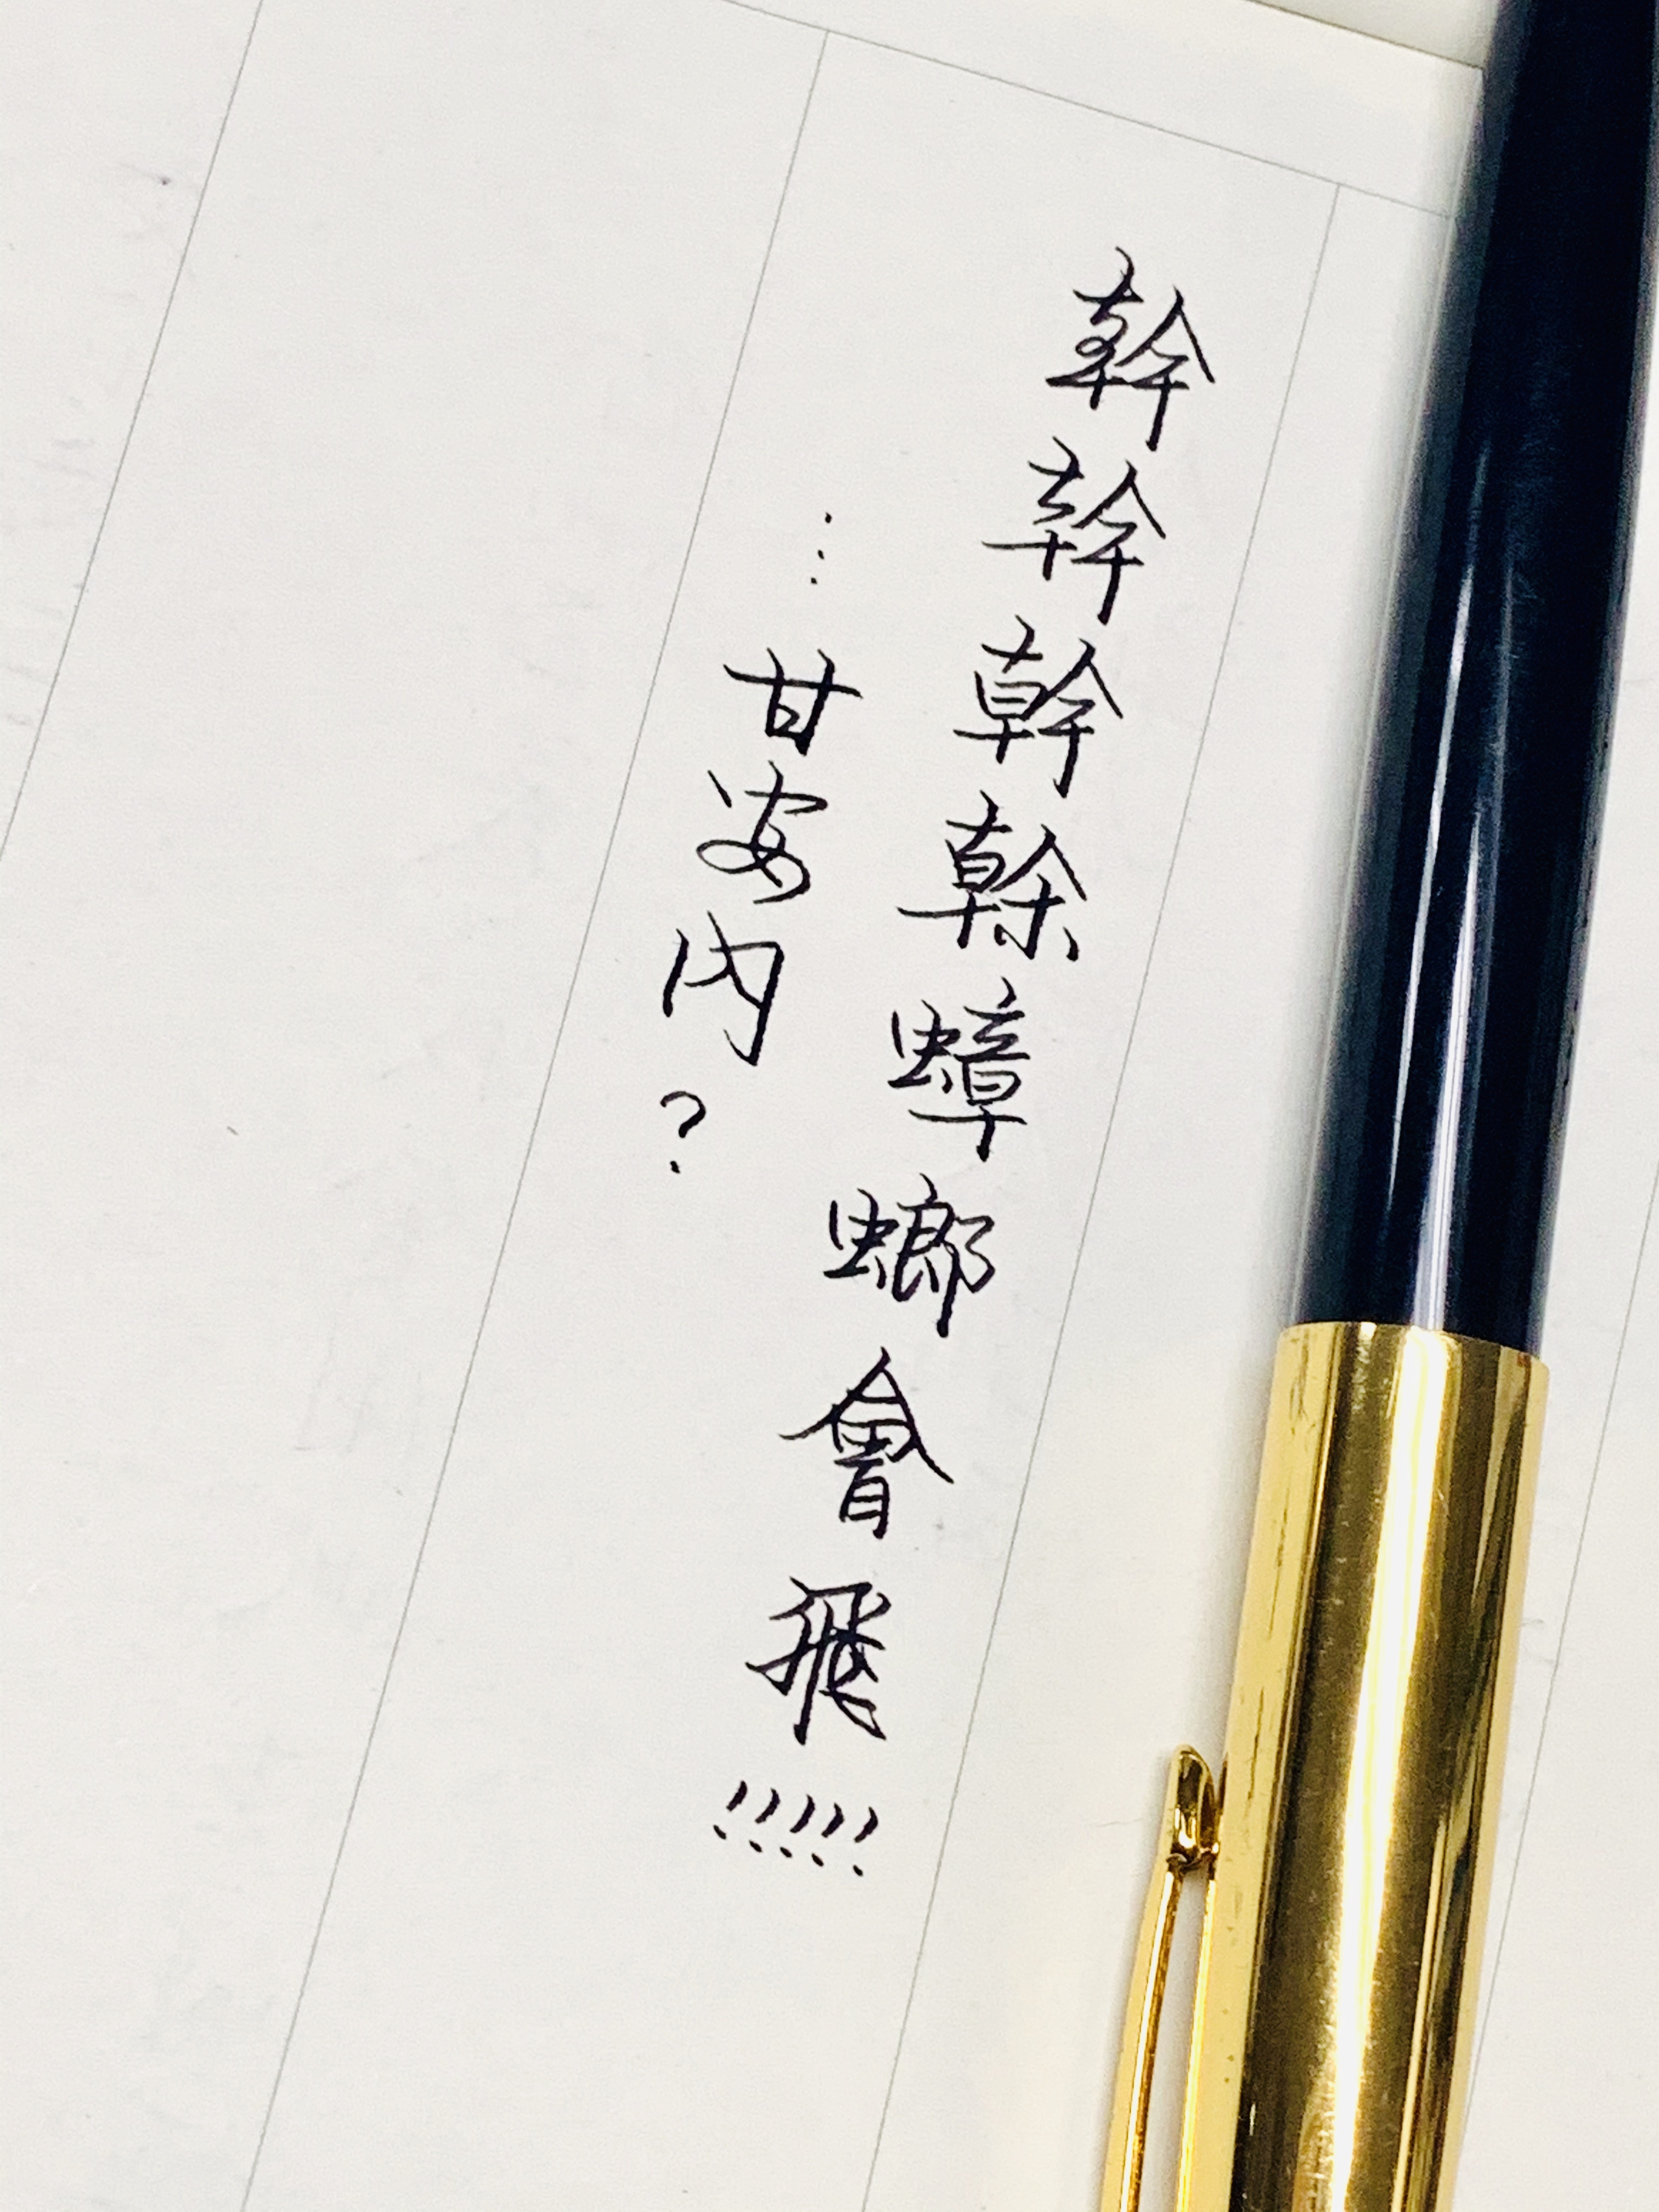 幹幹幹幹蟑螂會飛!!!!!
…甘安內?